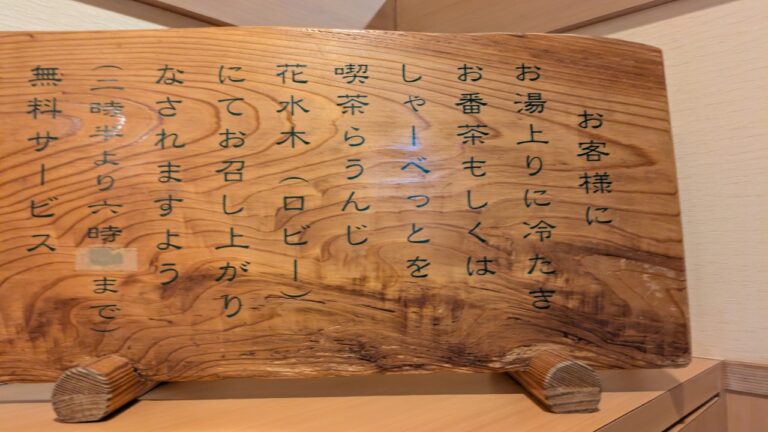 お客様に
お湯上りに冷たき
お番茶もしくは
しゃーべっとを
喫茶らうんじ
花水木（ロビー）
にてお召し上がり
なされますよう
（二時半より六時まで）
無料サービス